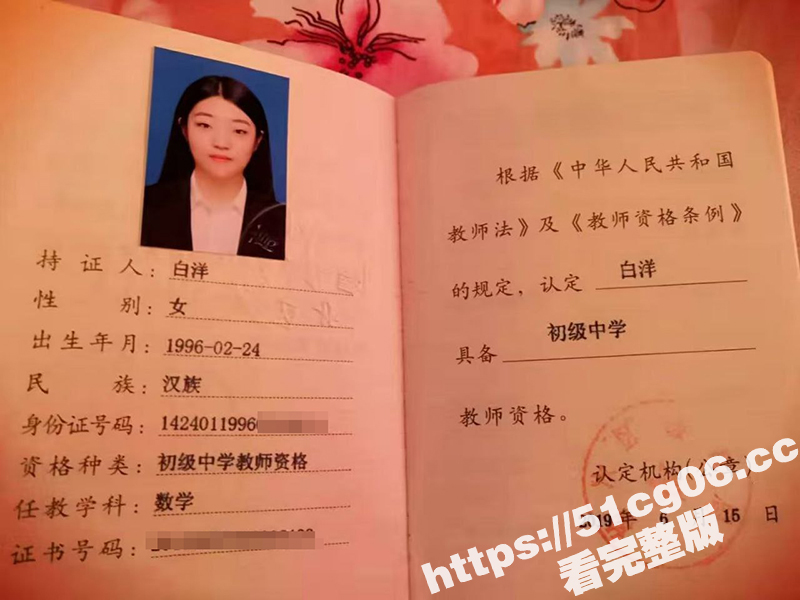 持证人：白洋
性别：女
出生年月：1996-02-24
民族：汉族
身份证号码：1424011996
资格种类：初级中学教师资格
任教学科：数学
证书号码：
根据《中华人民共和国
教师法》及《教师资格条例》
的规定，认定 白洋
具备 初级中学
教师资格。
认定机构(公章)
2019年 6 15 日
https://51cg06.cc
看完整版